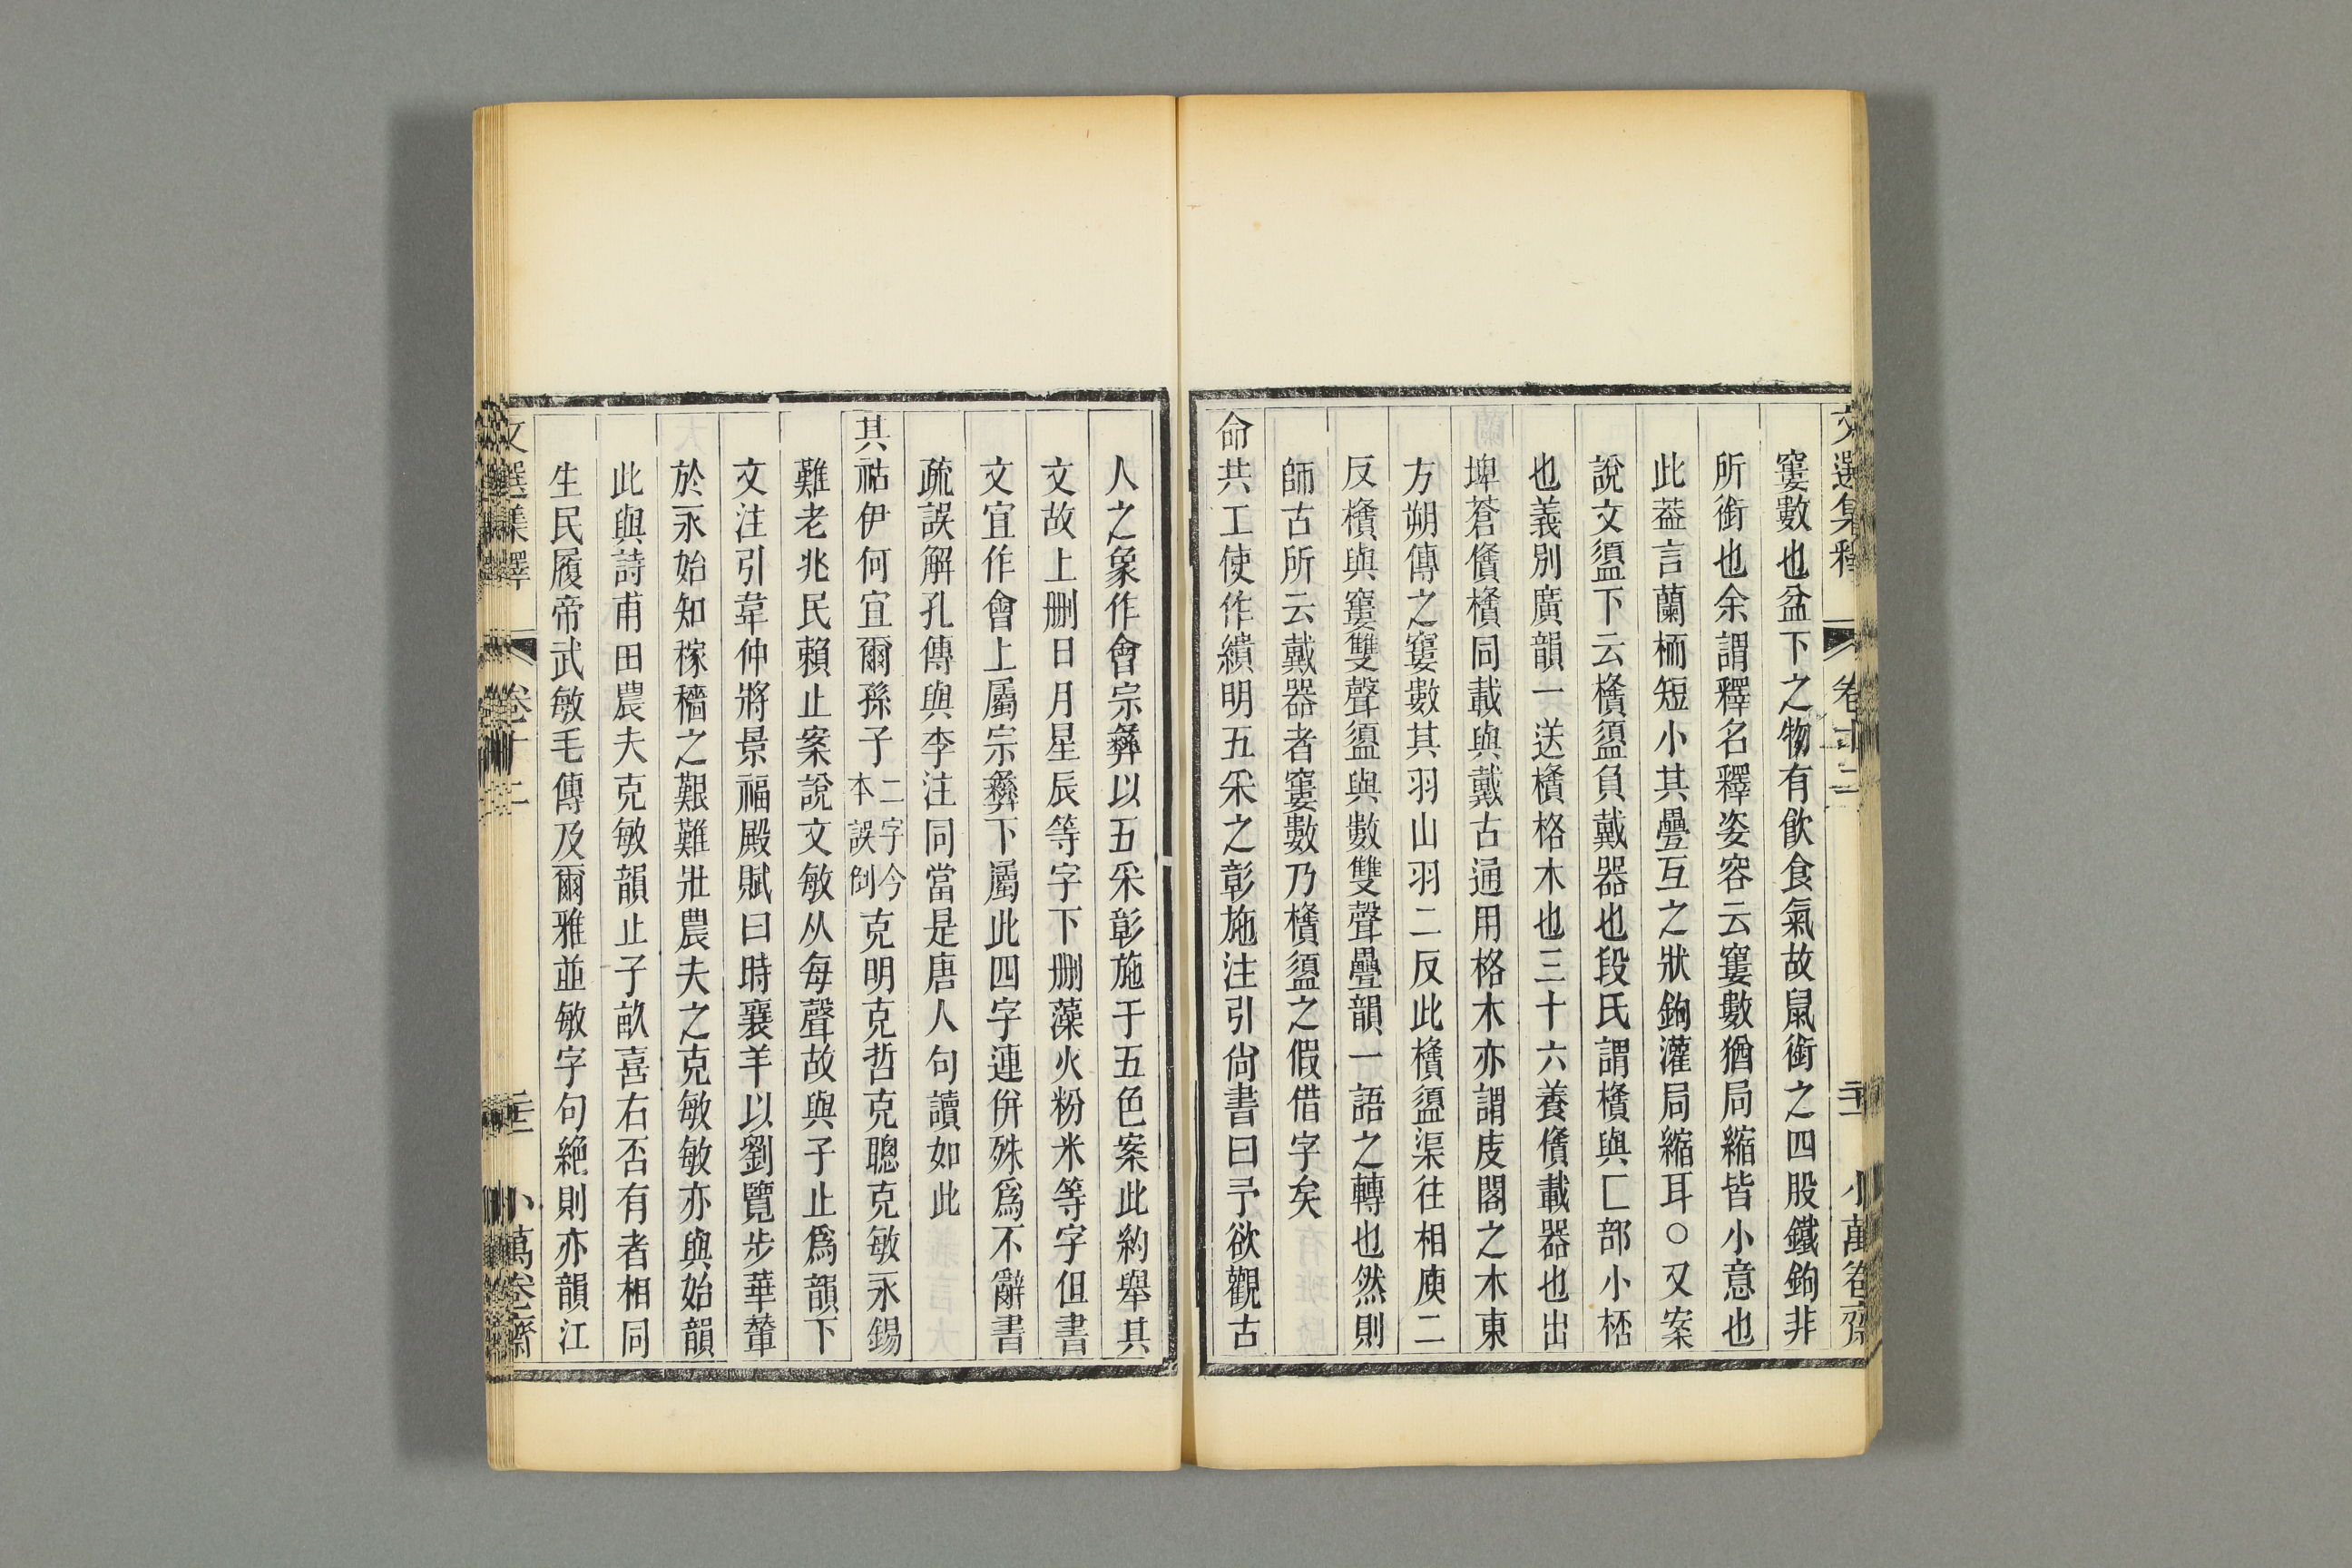 文選集釋 卷十二 小萬卷齋
窶數也盆下之物有飲食氣故鼠銜之四股鐵鉤非
所銜也余謂釋名釋姿容云窶數猶局縮皆小意也
此葢言蘭栭短小其疊互之狀鉤灌局縮耳○又案
說文䀇下云㰅䀇負戴器也段氏謂㰅與匚部小桮
也義別廣韻一送㰅格木也三十六養㒑載器也出
埤蒼㒑㰅同載與戴古通用格木亦謂庋閣之木東
方朔傳之窶數其羽山羽二反此㰅䀇渠往相庾二
反㰅與窶雙聲䀇與數雙聲疊韻一語之轉也然則
師古所云戴器者窶數乃㰅䀇之假借字矣
命共工使作繢明五采之彰施注引尙書曰予欲觀古
人之象作會宗彝以五采彰施于五色案此約舉其
文故上删日月星辰等字下删藻火粉米等字但書
文宜作會上屬宗彝下屬此四字連併殊爲不辭書
疏誤解孔傳與李注同當是唐人句讀如此
其祜伊何宜爾孫子二字今本誤倒克明克哲克聰克敏永錫
難老兆民賴止案說文敏从每聲故與子止爲韻下
文注引韋仲將景福殿賦曰時襄羊以劉覽步華輦
於永始知稼穡之艱難壯農夫之克敏敏亦與始韻
此與詩甫田農夫克敏韻止子畝喜右否有者相同
生民履帝武敏毛傳及爾雅並敏字句絶則亦韻江
文選集釋 卷十二 小萬卷齋